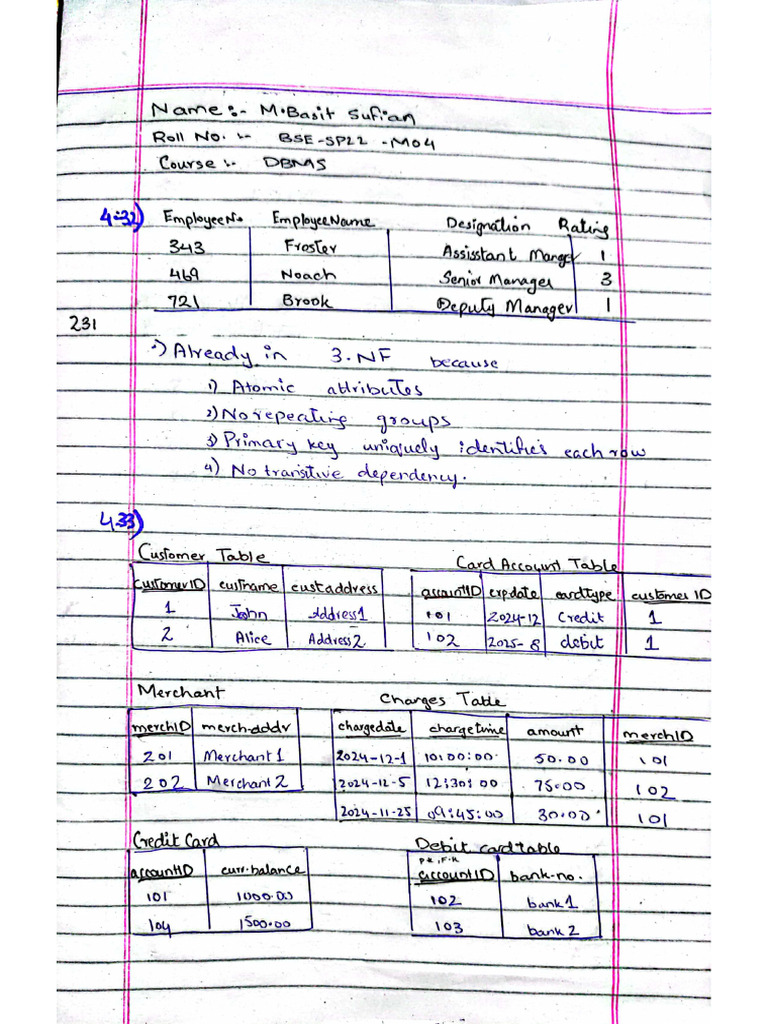 Name:- M.Basit Sufian
Roll No. :- BSE-SP22 -M04
Course :- DBMS
4.32) EmployeeNo EmployeeName Designation Rating
343 Froster Assisstant Manger 1
469 Noach Senior Manager 3
721 Brook Deputy Manager 1
231
Already in 3.NF because
1) Atomic attributes
2) No repeating groups
3) Primary key uniquely identifies each row
4) No transitive dependency.
4.33)
Customer Table Card Account Table
customerID custname custaddress accountID expdate cardtype customer ID
1 John Address1 101 2024-12 Credit 1
2 Alice Address2 102 2025-8 debit 1
Merchant Charges Table
merchID merch-addr chargedate chargetime amount merchID
201 Merchant 1 2024-12-1 10:00:00 50.00 101
202 Merchant 2 2024-12-5 12:30:00 75.00 102
2024-11-25 09:45:00 30.00 101
Credit Card Debit card table
P.K, F.K
accountID curr.balance accountID bank-no.
101 1000.00 102 bank 1
104 1500.00 103 bank 2